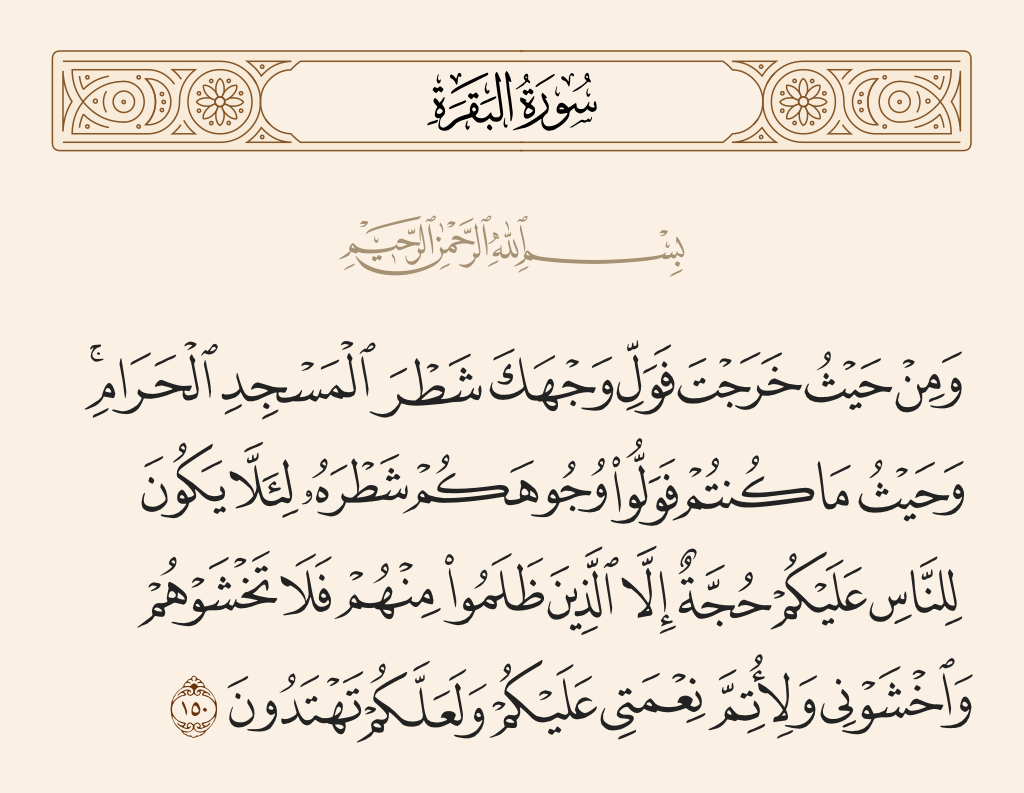 سُورَةُ البَقَرَةِ
بِسْمِ ٱللَّهِ ٱلرَّحْمَٰنِ ٱلرَّحِيمِ
وَمِنْ حَيْثُ خَرَجْتَ فَوَلِّ وَجْهَكَ شَطْرَ ٱلْمَسْجِدِ ٱلْحَرَامِۚ
وَحَيْثُ مَا كُنتُمْ فَوَلُّوا۟ وُجُوهَكُمْ شَطْرَهُۥ لِئَلَّا يَكُونَ
لِلنَّاسِ عَلَيْكُمْ حُجَّةٌ إِلَّا ٱلَّذِينَ ظَلَمُوا۟ مِنْهُمْ فَلَا تَخْشَوْهُمْ
وَٱخْشَوْنِى وَلِأُتِمَّ نِعْمَتِى عَلَيْكُمْ وَلَعَلَّكُمْ تَهْتَدُونَ ١٥٠